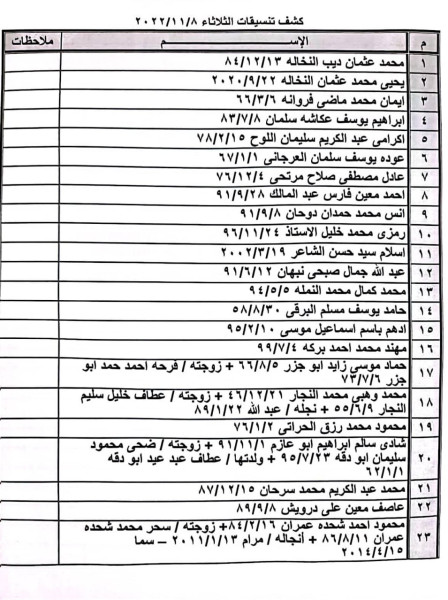 كشف تنسيقات الثلاثاء ٢٠٢٢/١١/٨
م الإســـــم ملاحظات
١ محمد عثمان ديب النخاله ٨٤/١٢/١٣
٢ يحيى محمد عثمان النخاله ٢٠٢٠/٩/٢٢
٣ ايمان محمد ماضى فروانه ٦٦/٣/٦
٤ ابراهيم يوسف عكاشه سلمان ٨٣/٧/٨
٥ اكرامى عبد الكريم سليمان اللوح ٧٨/٢/١٥
٦ عوده يوسف سلمان العرجانى ٦٧/١/١
٧ عادل مصطفى صلاح مرتجى ٧٦/١٢/٤
٨ احمد معين فارس عبد المالك ٩١/٩/٢٨
٩ انس محمد حمدان دوحان ٩١/٩/٨
١٠ رمزى محمد خليل الاستاذ ٩٦/١١/٢٤
١١ اسلام سيد حسن الشاعر ٢٠٠٢/٣/١٩
١٢ عبد الله جمال صبحى نبهان ٩١/٦/١٢
١٣ محمد كمال محمد النمله ٩٤/٥/٥
١٤ حامد يوسف مسلم البرقى ٥٨/٨/٣٠
١٥ ادهم باسم اسماعيل موسى ٩٥/٢/١٠
١٦ مهند محمد احمد بركه ٩٩/٧/٤
١٧ حماد موسى زايد ابو جزر ٦٦/٨/٥ + زوجته / فرحه احمد حمد ابو
جزر ٧٣/٧/٦
١٨ محمد وهبى محمد النجار ٤٦/١٢/٢١ + زوجته / عطاف خليل سليم
النجار ٥٥/٦/٩ + نجله / عبد الله ٨٩/١/٢٢
١٩ محمود محمد رزق الحراتى ٧٦/١/٢
٢٠ شادى سالم ابراهيم ابو عازم ٩١/١١/١ + زوجته / ضحى محمود
سليمان ابو دقه ٩٥/٧/٢٣ + ولدتها / عطاف عبد عيد ابو دقه
٦٢/١/١
٢١ محمد عبد الكريم محمد سرحان ٨٧/١٢/١٥
٢٢ عاصف معين على درويش ٨٩/٩/٨
٢٣ محمود احمد شحده عمران ٨٤/٢/١٦+ زوجته / سحر محمد شحده
عمران ٨٦/٨/١١ + أنجاله / مرام ٢٠١١/١/١٣ – سما
٢٠١٤/٤/١٥